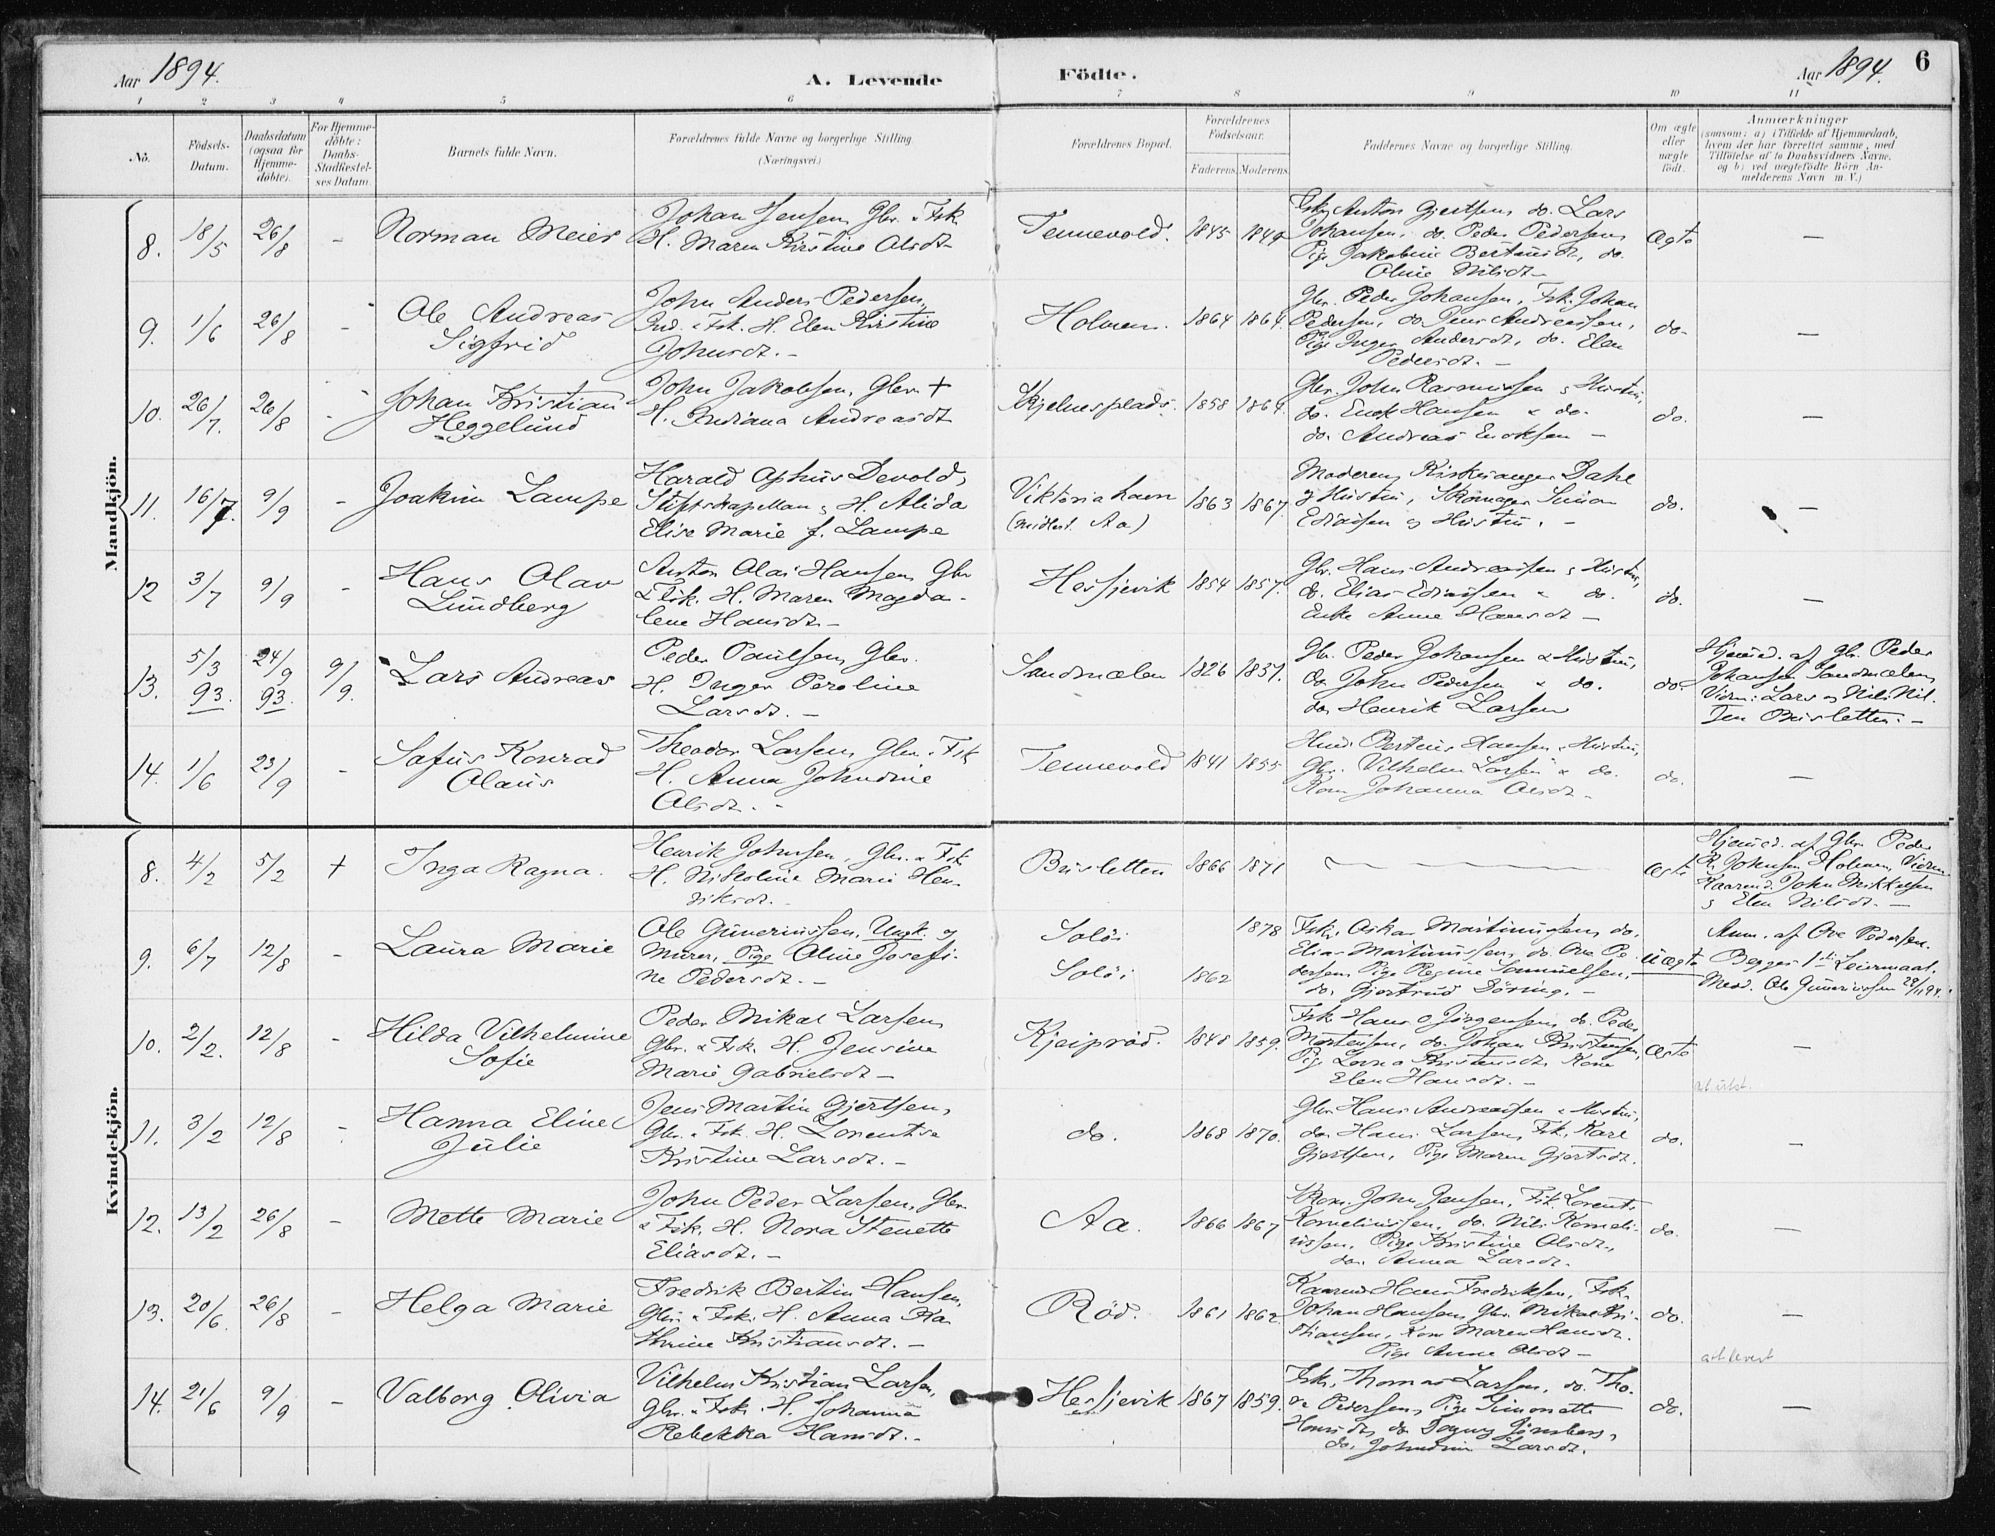 Aar 1894.
A. Levende Födte.
Aar 1894.
6
1 2 3 4 5 6 7 8 9 10 11
No.
Födsels-Datum.
Daabsdatum (ogsaa for Hjemme-döbte).
For Hjemme-döbte: Daabs-Stadfæstel-ses Datum
Barnets fulde Navn.
Forældrenes fulde Navne og borgerlige Stilling (Næringsvei.)
Forældrenes Bopæl.
Forældrenes Födselsaar.
Faderens. Moderens.
Faddernes Navne og borgerlige Stilling.
Om ægte eller uægte födt.
Anmærkninger (saasom: a) i Tilfælde af Hjemmedaab, hvem der har forrettet samme, med Tilföielse af to Daabsvidners Navne, og b) ved uægtefödte Börn An-melderens Navn m. V.)
Mandkjön.
8. 18/5 26/8 - Norman Meier
Johan Jensen, Gbr. & Fsk.
H. Maren Kristine Olsdt.
Tennevold. 1845 1849
Fsk. Anton Gjertsen, do. Lars
Johansen, do. Peder Pedersen,
Pige Jakobine Bertinsdt., do.
Oline Nilsdt.
Ægte —
9. 1/6 26/8 - Ole Andreas
Sigfrid
John Anders Pedersen,
Ind. & Fsk. H. Elen Kirstine
Johnsdt. -
Holmen. 1864 1864.
Gbr. Peder Johansen, Fsk. Johan
Pedersen, do. Jens Andreassen,
Pige Inger Andersdt., do. Elen
Pedersdt. -
do. —
10. 26/7. 26/8 - Johan Kristian
Heggelund
John Jakobsen, Gbr. +
H. Indiana Andreasdt
Kjelnesplads. 1858 1864.
Gbr. John Rasmussen & Hustru,
do. Enok Hansen & do.
do. Andreas Enoksen -
do. —
11. 16/7. 9/9 - Joakim Lampe
Harald Aphus Devold,
Stiftskapellan & H. Alida
Elise Marie f. Lampe
Viktoriahavn
(midlert. Aa) 1863 1867.
Moderen, Kirkesanger Dahl
& Hustru, Skomager Simon
Eliassen og Hustru. -
do. —
12 3/7 9/9 - Hans Olav
Lundberg
Anton Olai Hansen, Gbr
& Fsk. H. Maren Magda-
lene Hansdt. -
Hessjevik 1854 1857.
Gbr. Hans Andreassen & Hustru,
do. Elias Eliassen & do.
Enke Anne Hansdt -
do. —
13. 5/3 93. 24/9 93. 9/9. Lars Andreas
Peder Paulsen, Gbr.
H. Inger Peroline
Larsdt. -
Sandmælen 1826 1837.
Gbr. Peder Johansen & Hustru,
do John Pedersen & do.
do. Henrik Larsen
do.
Hjemmed. af Gbr. Peder
Johansen Sandmælen,
Vidn: Lars og Nils Nil-
sen Brusletten. -
14. 1/6 23/9 - Sofus Konrad
Olaus
Theodor Larsen, Gbr. & Fsk
H. Anna Johndine
Olsdt. -
Tennevold 1841 1855
Husm. Bertius Hansen & Hustru,
Gbr. Vilhelm Larsen & do.
Kone Johanna Olsdt. -
do. —
Kvindekjön.
8. 4/2 5/2 + Inga Ragna.
Henrik Johnsen, Gbr. & Fsk
H. Nikoline Marie Hen-
riksdt. -
Brusletten 1866 1871
Ægte
Hjemmed. af Gbr. Peder
Johnsen Holmen, Vidn:
Kaarmd. John Mikkelsen
& Elen Nilsdt. -
9. 6/7 12/8 - Laura Marie
Ole Guneriussen, Ungk. og
Murer, Pige Oline Josefi-
ne Pedersdt. -
Soløi 1878
Soløi 1862
Fsk. Oskar Martinussen, do.
Elias Martinussen, do. Ove Pe-
dersen, Pige Regine Samuelsen,
do. Gjertrud Döring. -
Uægte
Anm. af Ove Pedersen.
Begges 1ste Leiermaal.
Medd. Ole Guneriussen 29/11 94.
10. 2/2. 12/8 - Hilda Vilhelmine
Sofie
Peder Mikal Larsen,
Gbr. & Fsk. H. Jensine
Marie Gabrielsdt -
Kjeiprød. 1848 1859.
Fsk Hans O Jörgensen, do. Peder
Mortensen, do. Johan Kristensen,
Pige Lovna Kristensdt, Kone
Elen Hansdt. -
Ægte —
att. utst.
11. 3/2 12/8 - Hanna Eline
Julie
Jens Martin Gjertsen,
Gbr. & Fsk. H. Lorentse
Kristine Larsdt. -
do. 1868 1870.
Gbr Hans Andreassen & Hustru,
do. Hans Larsen, Fsk. Karl
Gjertsen, Pige Maren Gjertsdt.
do. —
12. 13/2 26/8 - Mette Marie
John Peder Larsen, Gbr
& Fsk. H. Nora Stenette
Eliasdt. -
Aa. 1866 1867
Skom. John Jensen, Fsk. Lorents
Korneliussen, do. Nils Korneli-
ussen, Pige Kristine Olsdt.,
do. Anna Larsdt.
do. —
13. 20/6. 26/8 - Helga Marie
Fredrik Bertin Hansen,
Gbr. & Fsk. H. Anna Ka-
thrine Kristiansdt. -
Röd. 1861 1862
Kaarmd. Hans Fredriksen, Fsk.
Johan Hansen, Gbr. Mikal Kri-
stiansen, Kone Maren Hansdt.
Pige Anne Olsdt -
do. —
att. levert
14. 21/6 9/9 - Valborg Olivia
Vilhelm Kristian Larsen,
Gbr. & Fsk. H. Johanna
Rebekka Hansdt. -
Hessjevik 1867 1859.
Fsk. Thomas Larsen, do. Tho-
re Pedersen, Pige Simonette
Hansdt., do Dagny Jönsberg,
do. Johndine Larsdt.
do. —